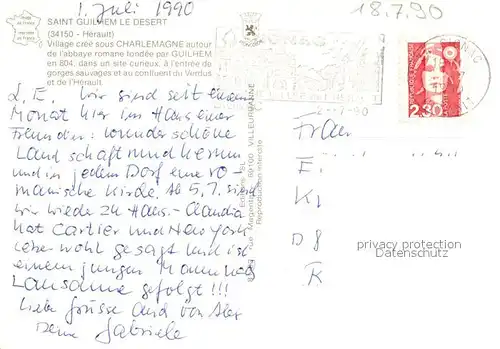 1. Juli 1990
18.7.90
SAINT GUILHEM LE DESERT
(34150 - Hérault)
Village créé sous CHARLEMAGNE autour
de l'abbaye romane fondée par GUILHEM
en 804, dans un site curieux, à l'entrée de
gorges sauvages et au confluent du Verdus
et de l'Hérault.
L. E. Wir sind seit einem
Monat hier im Haus einer
Freundin: wunderschöne
Landschaft rundherum
und in jedem Dorf eine ro-
manische Kirche. Ab 5.7. sind
wir wieder zu Haus. - Claudia
hat Cartier und New York
lebe wohl gesagt und ist
einem jungen Mann nach
Lausanne gefolgt!!!
Liebe Grüsse auch von Alex
Deine Gabriele
69100 VILLEURBANNE
Reproduction interdite
2,30
Frau
E.
K
D 8
K
www.ansichtskartenversand.com
Datenschutz